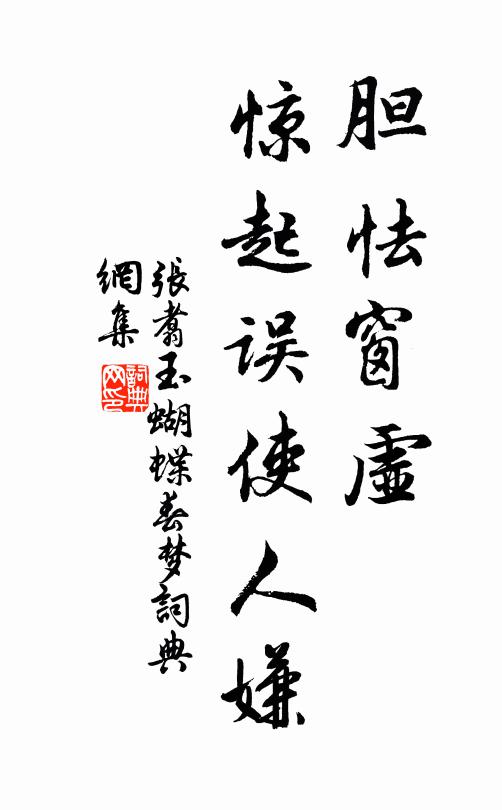 胆怯窗虚
惊起误使人嫌
张翥玉蝴蝶春梦词典
網集
詞典
网印